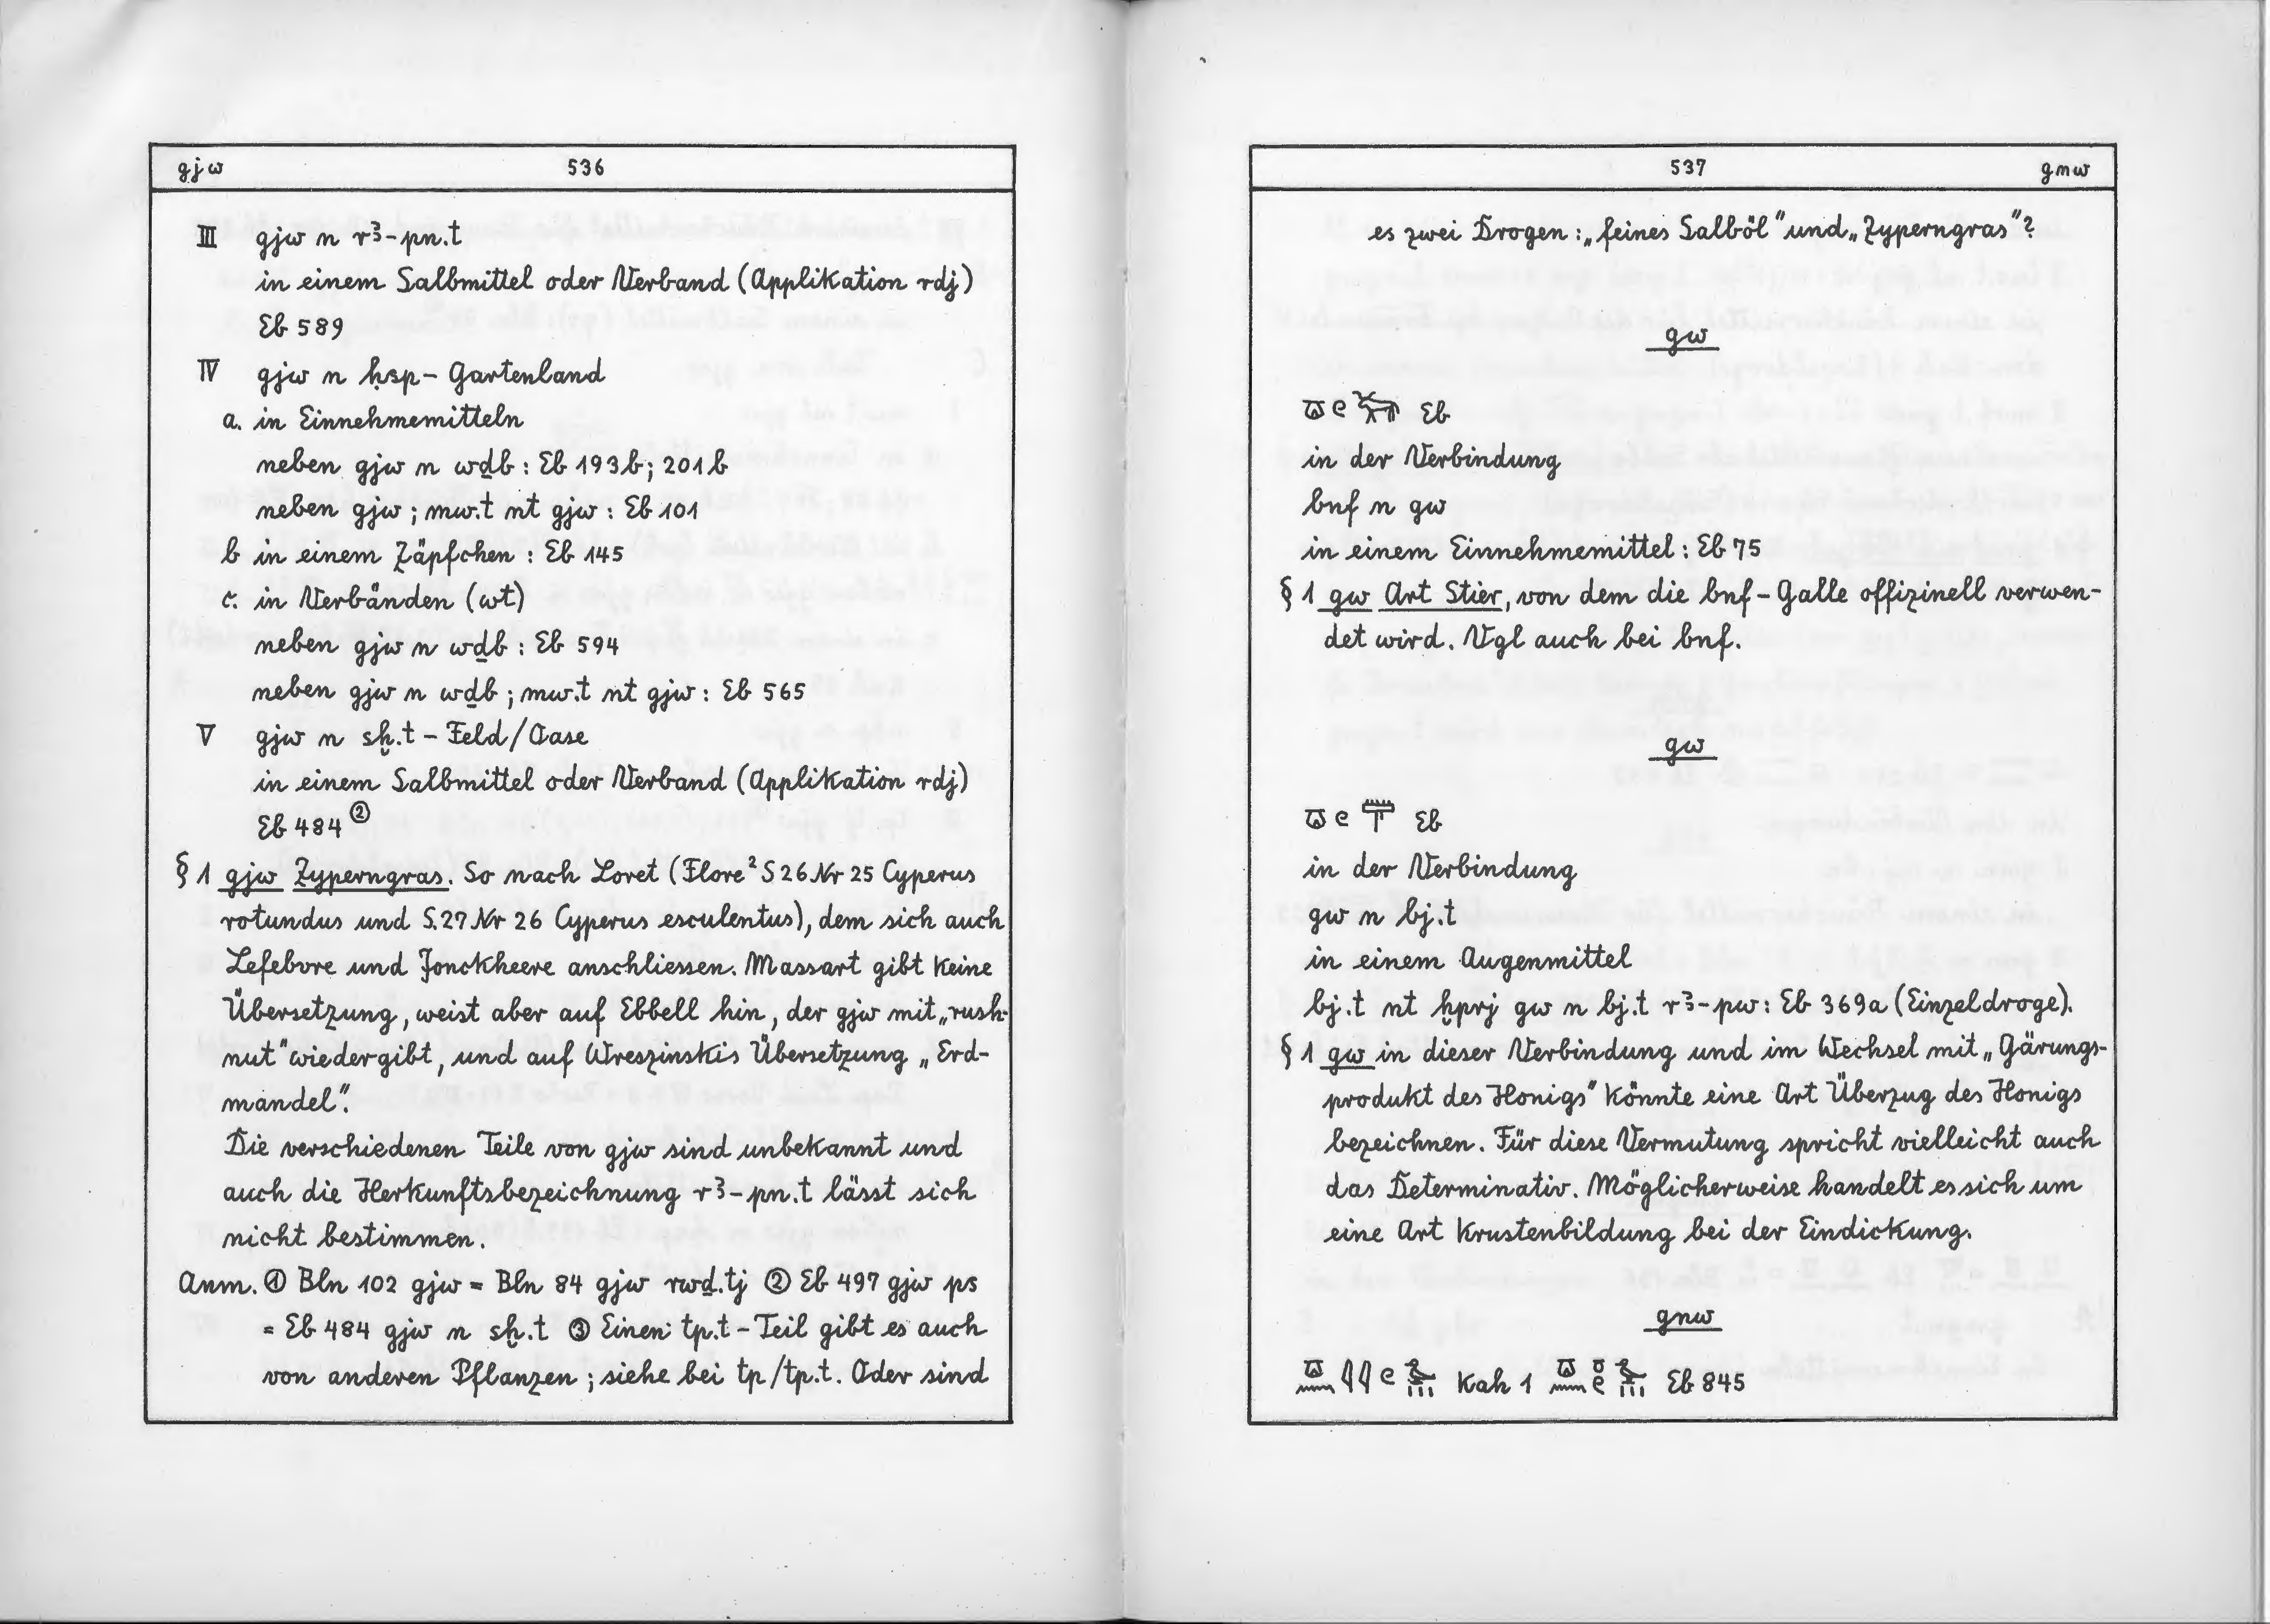 gjw 536
III gjw n rꜣ-pn.t
in einem Salbmittel oder Verband (Applikation rdj)
Eb 589
IV gjw n ḥsp - Gartenland
a. in Einnehmemitteln
neben gjw n wḏb : Eb 193b; 201b
neben gjw ; mw.t nt gjw : Eb 101
b in einem Zäpfchen : Eb 145
c. in Verbänden (wt)
neben gjw n wḏb : Eb 594
neben gjw n wḏb ; mw.t nt gjw : Eb 565
V gjw n sḫ.t - Feld/Oase
in einem Salbmittel oder Verband (Applikation rdj)
Eb 484 ②
§ 1 gjw Zyperngras. So nach Loret (Flore² S 26 Nr 25 Cyperus
rotundus und S. 27 Nr 26 Cyperus esculentus), dem sich auch
Lefebvre und Jonckheere anschliessen. Massart gibt keine
Übersetzung, weist aber auf Ebbell hin, der gjw mit „rush-
nut" wiedergibt, und auf Wreszinskis Übersetzung „Erd-
mandel".
Die verschiedenen Teile von gjw sind unbekannt und
auch die Herkunftsbezeichnung rꜣ-pn.t lässt sich
nicht bestimmen.
Anm. ① Bln 102 gjw = Bln 84 gjw rwḏ.tj ② Eb 497 gjw ps
= Eb 484 gjw n sḫ.t ③ Einen tp.t - Teil gibt es auch
von anderen Pflanzen ; siehe bei tp/tp.t. Oder sind
537 gmw
es zwei Drogen : „feines Salböl" und „Zyperngras"?
gw
Eb
in der Verbindung
bnf n gw
in einem Einnehmemittel : Eb 75
§ 1 gw Art Stier, von dem die bnf - Galle offizinell verwen-
det wird. Vgl auch bei bnf.
gw
Eb
in der Verbindung
gw n bj.t
in einem Augenmittel
bj.t nt ḫprj gw n bj.t rꜣ-pw : Eb 369a (Einzeldroge).
§ 1 gw in dieser Verbindung und im Wechsel mit „Gärungs-
produkt des Honigs" könnte eine Art Überzug des Honigs
bezeichnen. Für diese Vermutung spricht vielleicht auch
das Determinativ. Möglicherweise handelt es sich um
eine Art Krustenbildung bei der Eindickung.
gnw
Kah 1 Eb 845